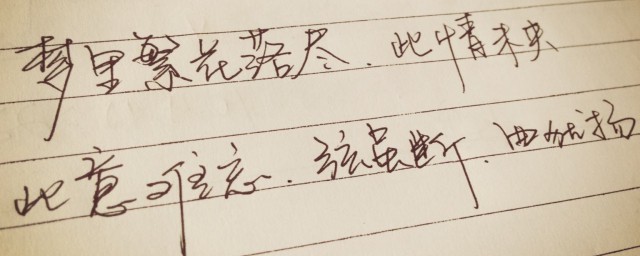 梦里繁花落尽.此情未央
此意难忘.弦虽断.曲犹扬